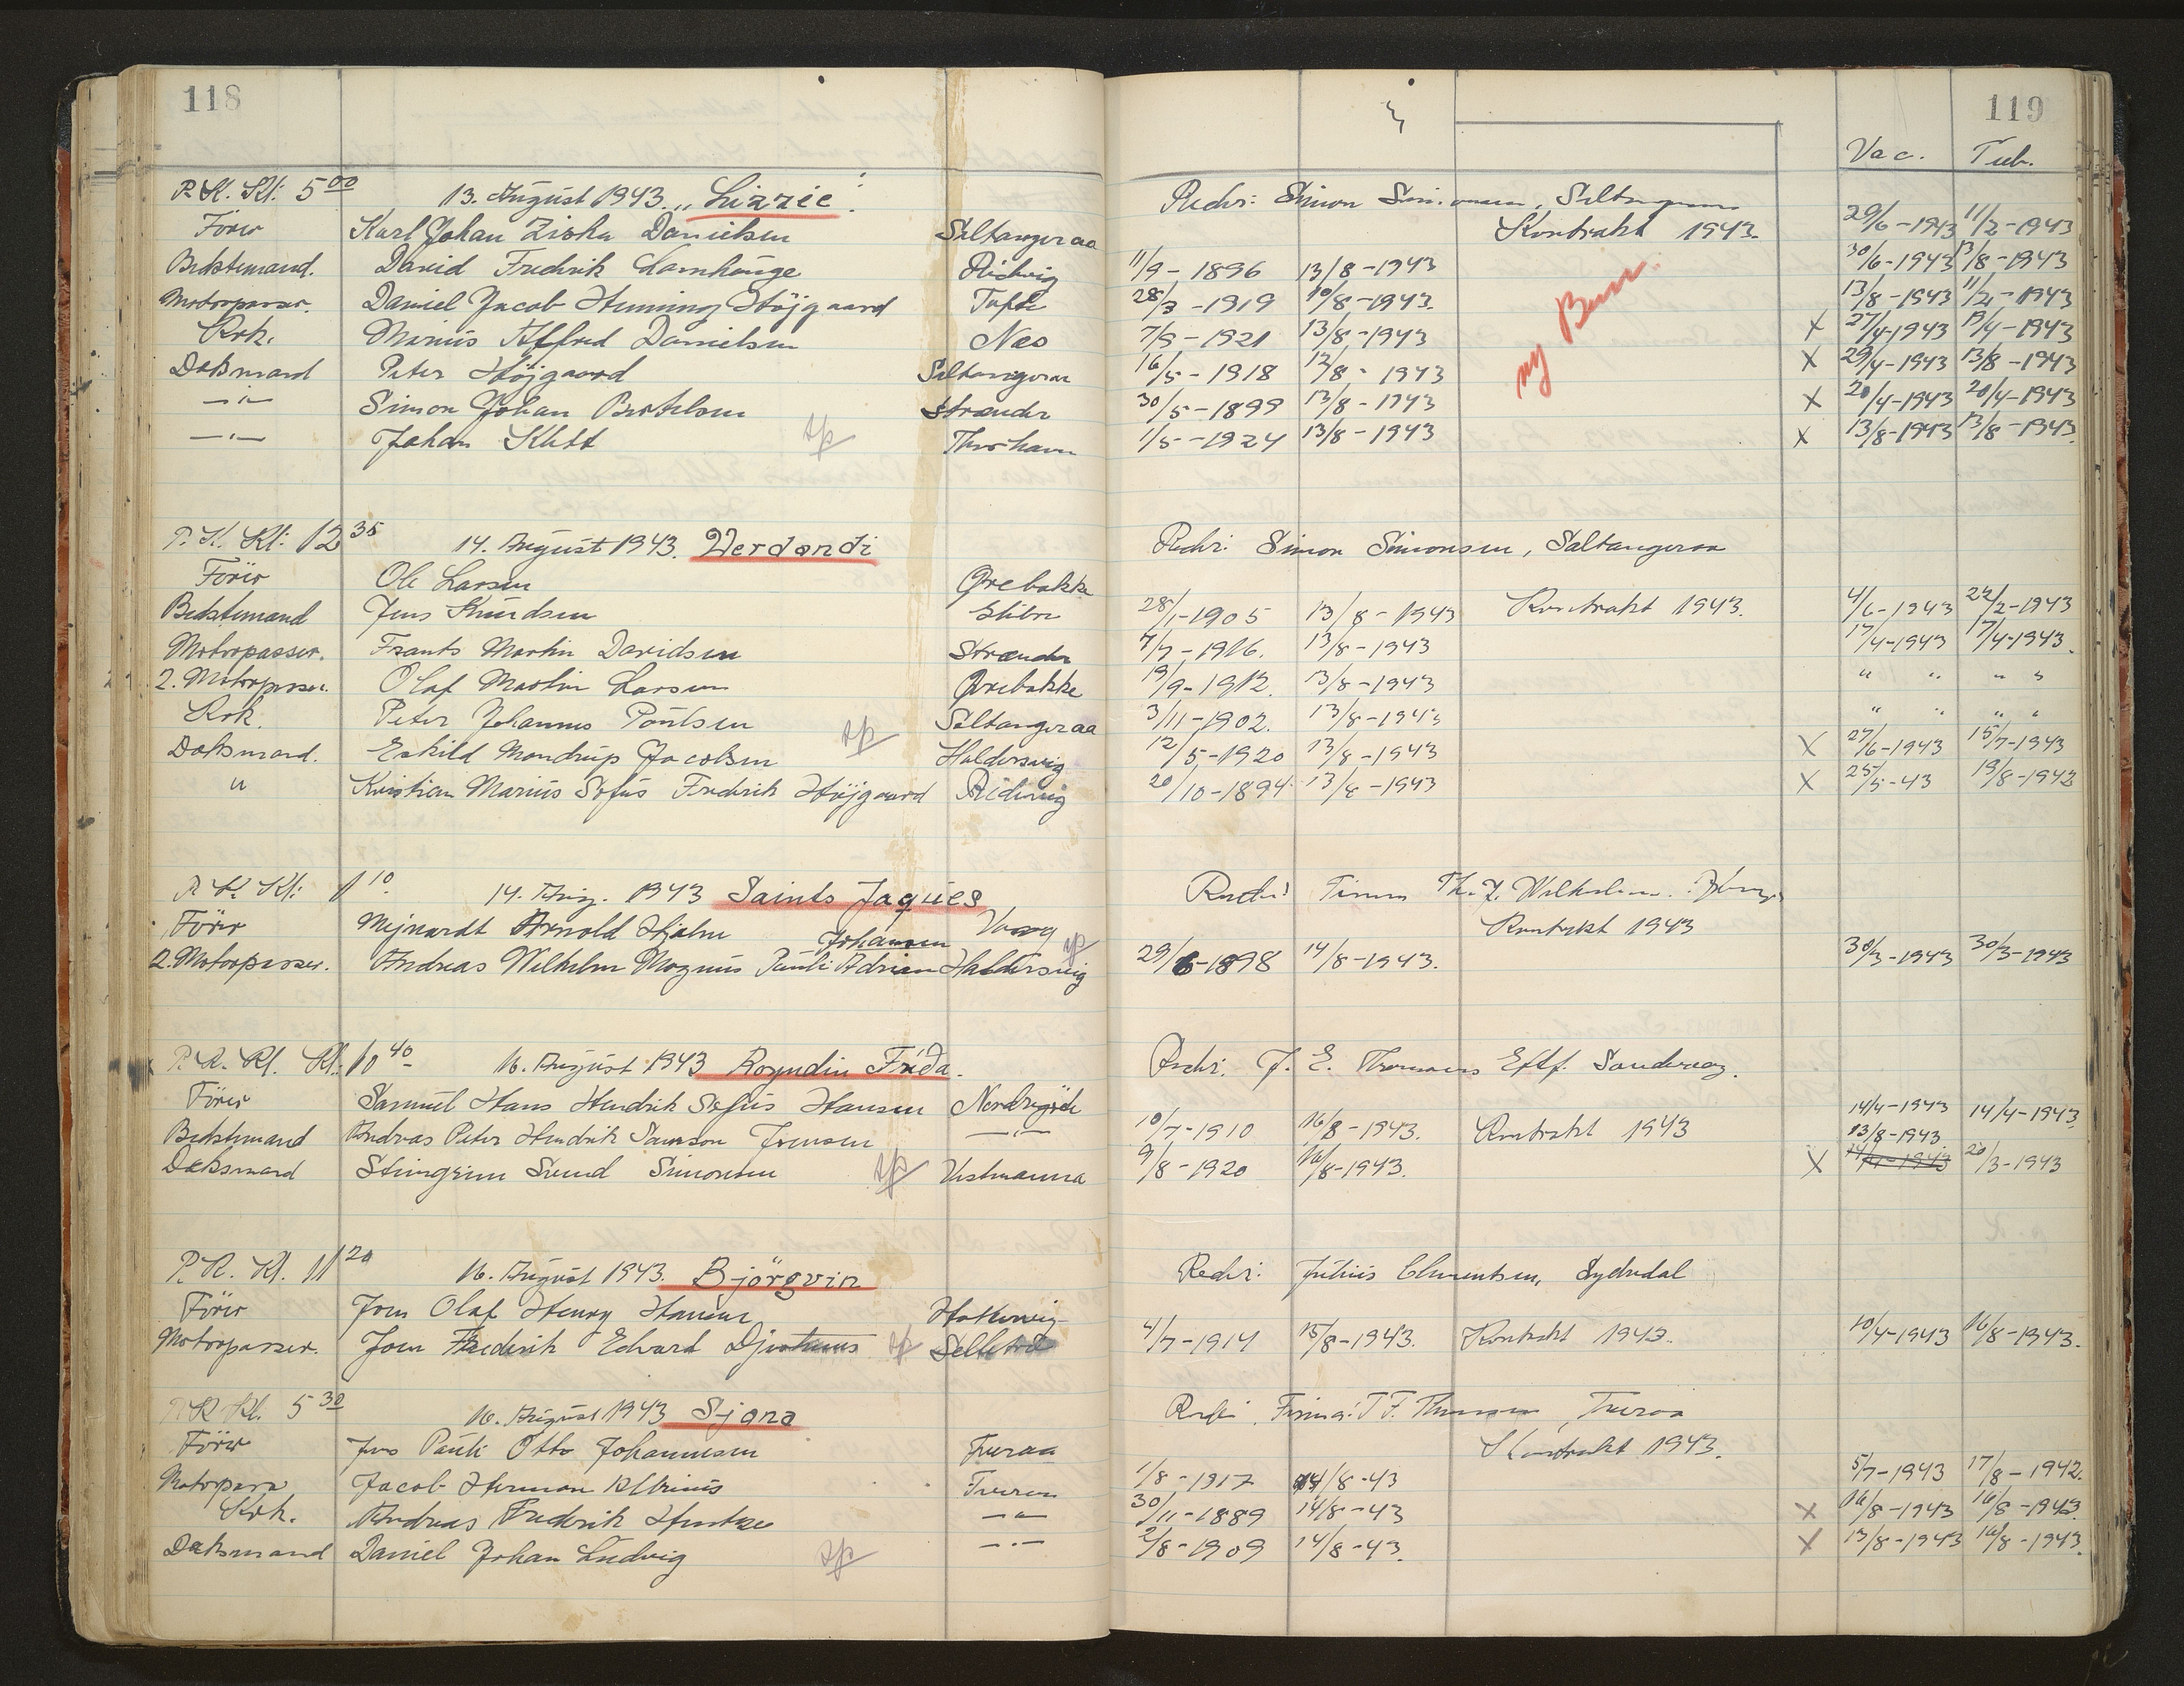 118
119
Vac. Tub.
P.K. Kl: 5 00 13. August 1943. "Lizzie". Reder: Simon Simonsen, Saltangeraa
Förer Karl Johan Ziska Danielsen Saltangeraa Kontrakt 1943. 29/6-1943 11/2-1943
Bedstemand. David Fredrik Lamhauge 11/9-1896 13/8-1943 30/6-1943 13/8-1943
Motorpasser. Daniel Jacob Henning Höjgaard Tofte 28/3-1919 10/8-1943. 13/8-1943 11/2-1943
Kok. Marius Alfred Danielsen Nes 7/9-1921 13/8-1943 X 27/4-1943 19/4-1943
Dæksmand Peter Höjgaard Saltangeraa 16/5-1918 12/8-1943 X 29/4-1943 13/8-1943
—"— Simon Johan Berthelsen Strænder 30/5-1899 13/8-1943 X 20/4-1943 20/4-1943
—"— Johan Klett Thorshavn 1/5-1924 13/8-1943 X 13/8-1943 13/8-1943
ny Bem.
P.K. Kl: 12 35 14. August 1943. Verdandi Reder: Simon Simonsen, Saltangeraa
Förer Ole Larsen Ørebakke
Bedstemand Jens Knudsen Glibre 28/1-1905 13/8-1943 Kontrakt 1943. 4/6-1943 22/2-1943
Motorpasser. Frants Martin Davidsen Strænder 7/7-1916. 13/8-1943 17/4-1943 17/4-1943.
2. Motorpasser. Olaf Martin Larsen Ørebakke 19/9-1912. 13/8-1943 " " " "
Kok. Peter Johannes Poulsen Saltangeraa 3/11-1902. 13/8-1943 " " " "
Dæksmand. Eskild Mondrup Jacobsen Haldersvig 12/5-1920 13/8-1943 X 27/6-1943 15/7-1943
" Kristian Marius Sofus Fredrik Höjgaard 20/10-1894 13/8-1943 X 25/5-43 19/8-1942
P.K. Kl: 1 10 14. Aug. 1943 Saints Jaques Reder: Firma Th. J. Vilhelm
Förer Mejnardt Arnold Hjalm Vaag Kontrakt 1943
Johansen
2. Motorpasser. Andreas Vilhelm Magnus Pauli Adrian Haldersvig 29/6-1898 14/8-1943. 30/3-1943 30/3-1943
P.K. Kl. Kl: 10 40 16. August 1943 Royndin Frída. Reder: J. E. Thomsens Eftf. Sandevaag.
Förer Samuel Hans Hendrik Sofus Hansen Nordragöte
Bedstemand Andreas Peter Hendrik Samson Joensen —"— 10/7-1910 16/8-1943. Kontrakt 1943 14/4-1943 14/4-1943
13/8-1943
Dæksmand Steingrim Svend Simonsen Vestmanna 9/8-1920 16/8-1943. X 20/3-1943
P.K. Kl. 11 20 16. August 1943. Björgvin Reder: Julius Clementsen, Sydredal
Förer Joen Olaf Henry Hansen Hattervig
Motorpasser. Joen Fredrik Edvard Djurhuus Selletræ 4/7-1914 15/8-1943. Kontrakt 1943. 10/4-1943 16/8-1943.
P.K Kl. 5 30 16. August 1943 Sjana Reder. Firma: T. F. Thomsen, Tveraa
Förer Jens Pauli Otto Johannesen Tveraa Kontrakt 1943.
Motorpass Jacob Herman 1/8-1917 14/8-43 5/7-1943 17/8-1942.
Kok. Andreas Fredrik Hentze —"— 30/11-1889 14/8-43 X 16/8-1943 16/8-1943.
Dæksmand Daniel Johan Ludvig —"— 2/8-1909 14/8-43. X 13/8-1943 16/8-1943.